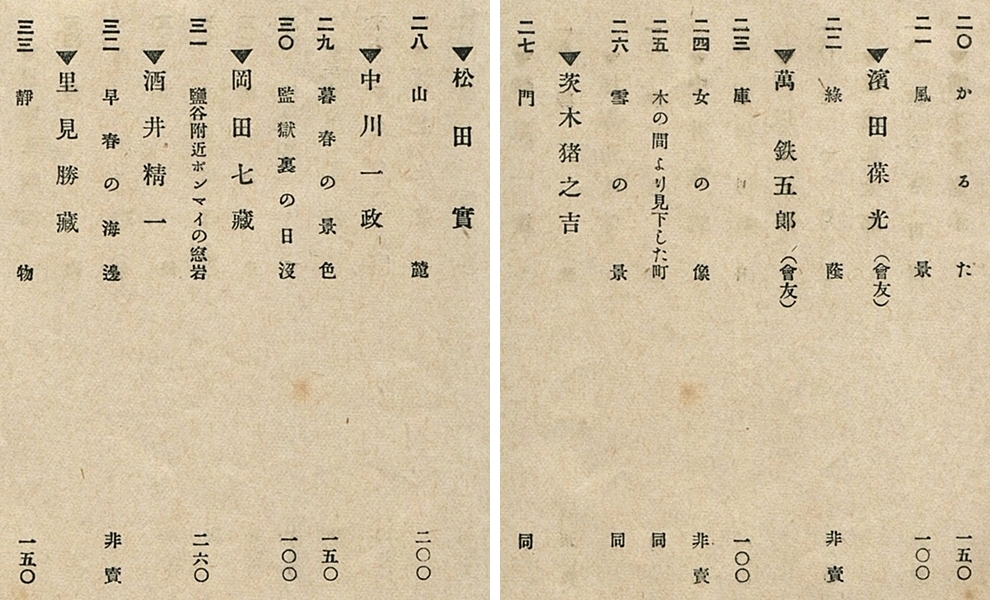 二〇 かるた 一五〇
二一 風景 一〇〇
▼濱田葆光（會友）
二二 綠蔭 非賣
▼萬鉄五郎（會友）
二三 庫 一〇〇
二四 女の像 非賣
二五 木の間より見下した町 同
二六 雪の景 同
▼茨木猪之吉
二七 門 同
▼松田實
二八 山麓 二〇〇
▼中川一政
二九 暮春の景色 一五〇
三〇 監獄裏の日沒 一〇〇
▼岡田七藏
三一 鹽谷附近ポンマイの窓岩 二六〇
▼酒井精一
三二 早春の海邊 非賣
▼里見勝藏
三三 靜物 一五〇